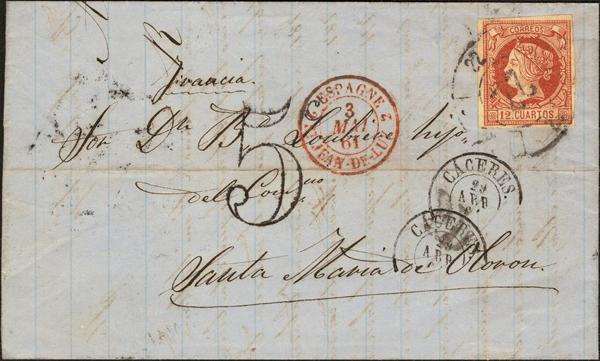 CORREOS
12 CUARTOS
22
Francia.
ESPAGNE 2
3
MAI
61
ST JEAN-DE-LUZ
Sor Dn B
hijo
5
del Comcio
CÁCERES.
29
ABR
CÁCERES
ABR
Santa Maria de Oloron.